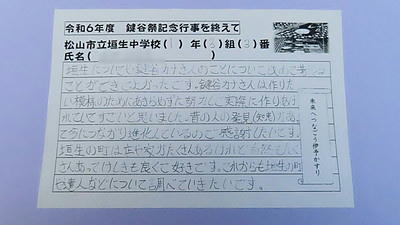 令和6年度 鍵谷祭記念行事を終えて
松山市立垣生中学校(1)年(3)組(3)番
氏名( )
垣生について、鍵谷カナさんのことについて
ことができてよかったです。鍵谷カナさんは作りた
い模様のためにあきらめずに努力して、実際に作りあげ
ていてすごいと思いました。昔の人の発見(知恵)があっ
て今につながり進化しているので感謝したいです。
垣生の町は店や家がたくさんあるけれど自然もたく
さんあってけしきも良くて好きです。これからも垣生の町
や偉人などについて調べていきたいです。
未来へつなごう伊予かすり